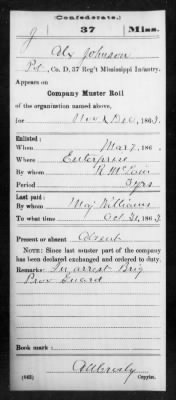 (Confederate.)
J 37 Miss.
Alx Johnson
Pvt, Co. D, 37 Reg't Mississippi Infantry.
Appears on
Company Muster Roll
of the organization named above,
for Nov & Dec, 1863.
Enlisted:
When Mar 7, 186
Where Enterprise
By whom R McLain
Period 3 yrs
Last paid:
By whom Maj Williams
To what time Oct 31, 1863
Present or absent Absent
NOTE: Since last muster part of the company has been declared exchanged and ordered to duty.
Remarks: In arrest Brig
Prov Guard
Book mark:
(642) Copyist.